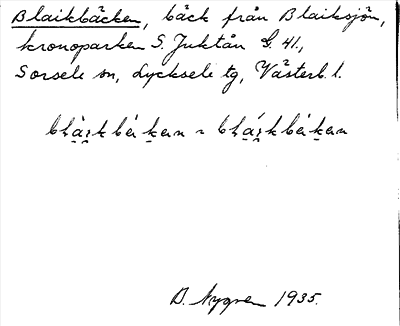 Blaikbäcken, bäck från Blaiksjön,
kronoparken S. Juktån G. 41,
Sorsele sn, Lycksele tg, Västerb. l.
B. Nygren 1935.